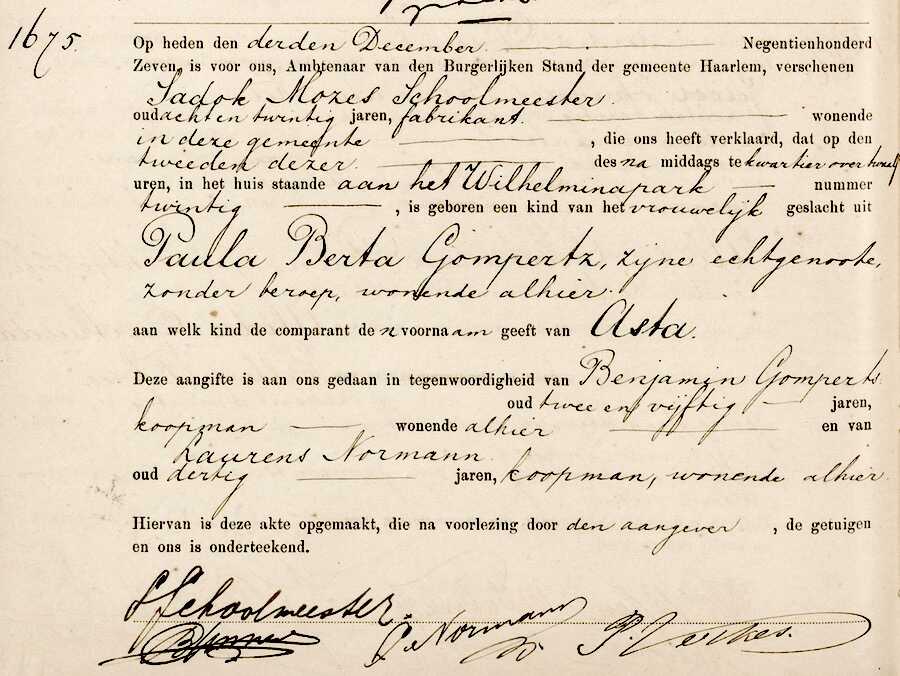 1675.
Op heden den derden December Negentienhonderd
Zeven, is voor ons, Ambtenaar van den Burgerlijken Stand der gemeente Haarlem, verschenen
Sadok Mozes Schoolmeester
oud acht en twintig jaren, fabrikant wonende
in deze gemeente , die ons heeft verklaard, dat op den
tweeden dezer des na middags te kwartier over twaalf
uren, in het huis staande aan het Wilhelminapark nummer
twintig , is geboren een kind van het vrouwelijk geslacht uit
Paula Berta Gompertz, zijne echtgenoote,
zonder beroep, wonende alhier.
aan welk kind de comparant den voornaam geeft van Asta.
Deze aangifte is aan ons gedaan in tegenwoordigheid van Benjamin Gomperts
oud twee en vijftig jaren,
koopman wonende alhier en van
Laurens Normann
oud dertig jaren, koopman, wonende alhier
Hiervan is deze akte opgemaakt, die na voorlezing door den aangever , de getuigen
en ons is onderteekend.
Schoolmeester
Normann